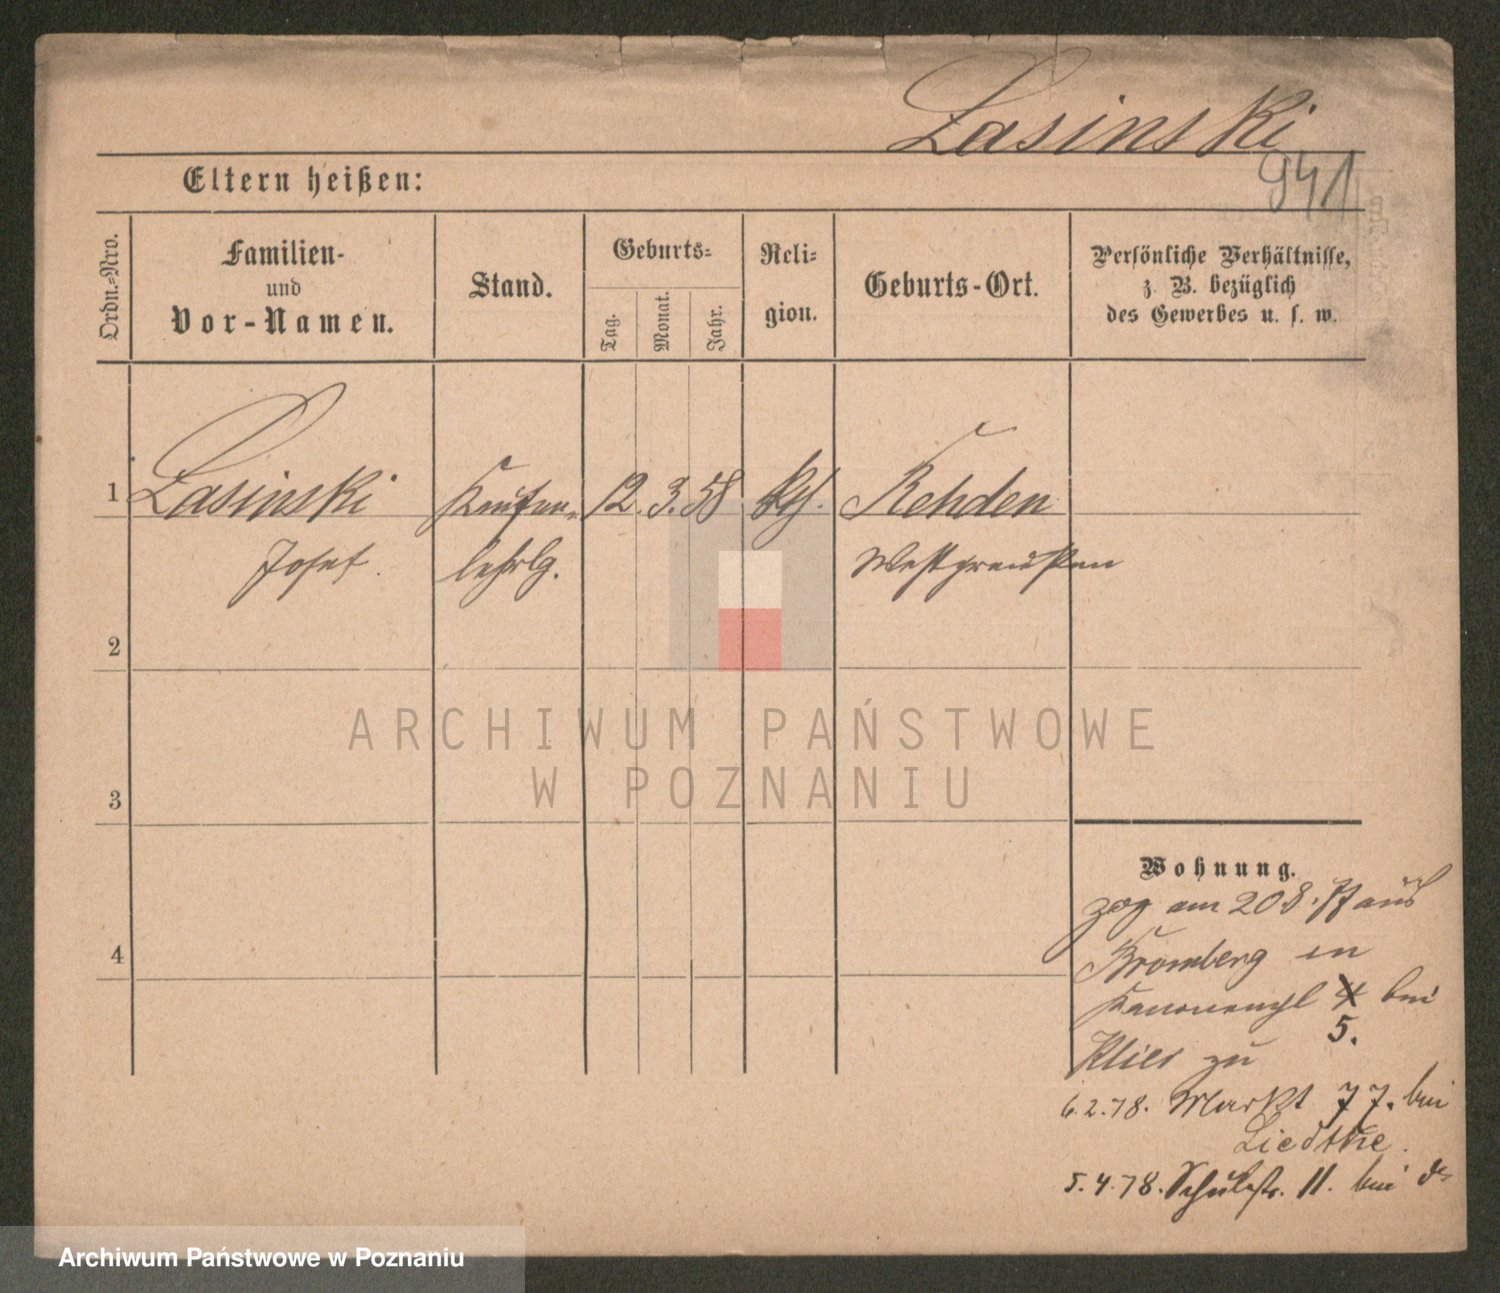 Lasinski
941
Eltern heißen:
Ordn.-Nro.
Familien-
und
Vor-Namen.
Stand.
Geburts-
Tag.
Monat.
Jahr.
Reli-
gion.
Geburts-Ort.
Persönliche Verhältnisse,
z. B. bezüglich
des Gewerbes u. s. w.
1 Lasinski Kaufm.- 12. 3. 58 kth. Rehden
Josef. lehrlg. Westpreußen
2
3
4
ARCHIWUM PAŃSTWOWE
W POZNANIU
Wohnung.
zog am 20 8. 77 aus
Bromberg in
Kanonenpl 4 bei
5.
Klies zu
6.2.78. Markt 77. bei
Liedtke.
5.4.78. Schulstr. 11. bei
Archiwum Państwowe w Poznaniu